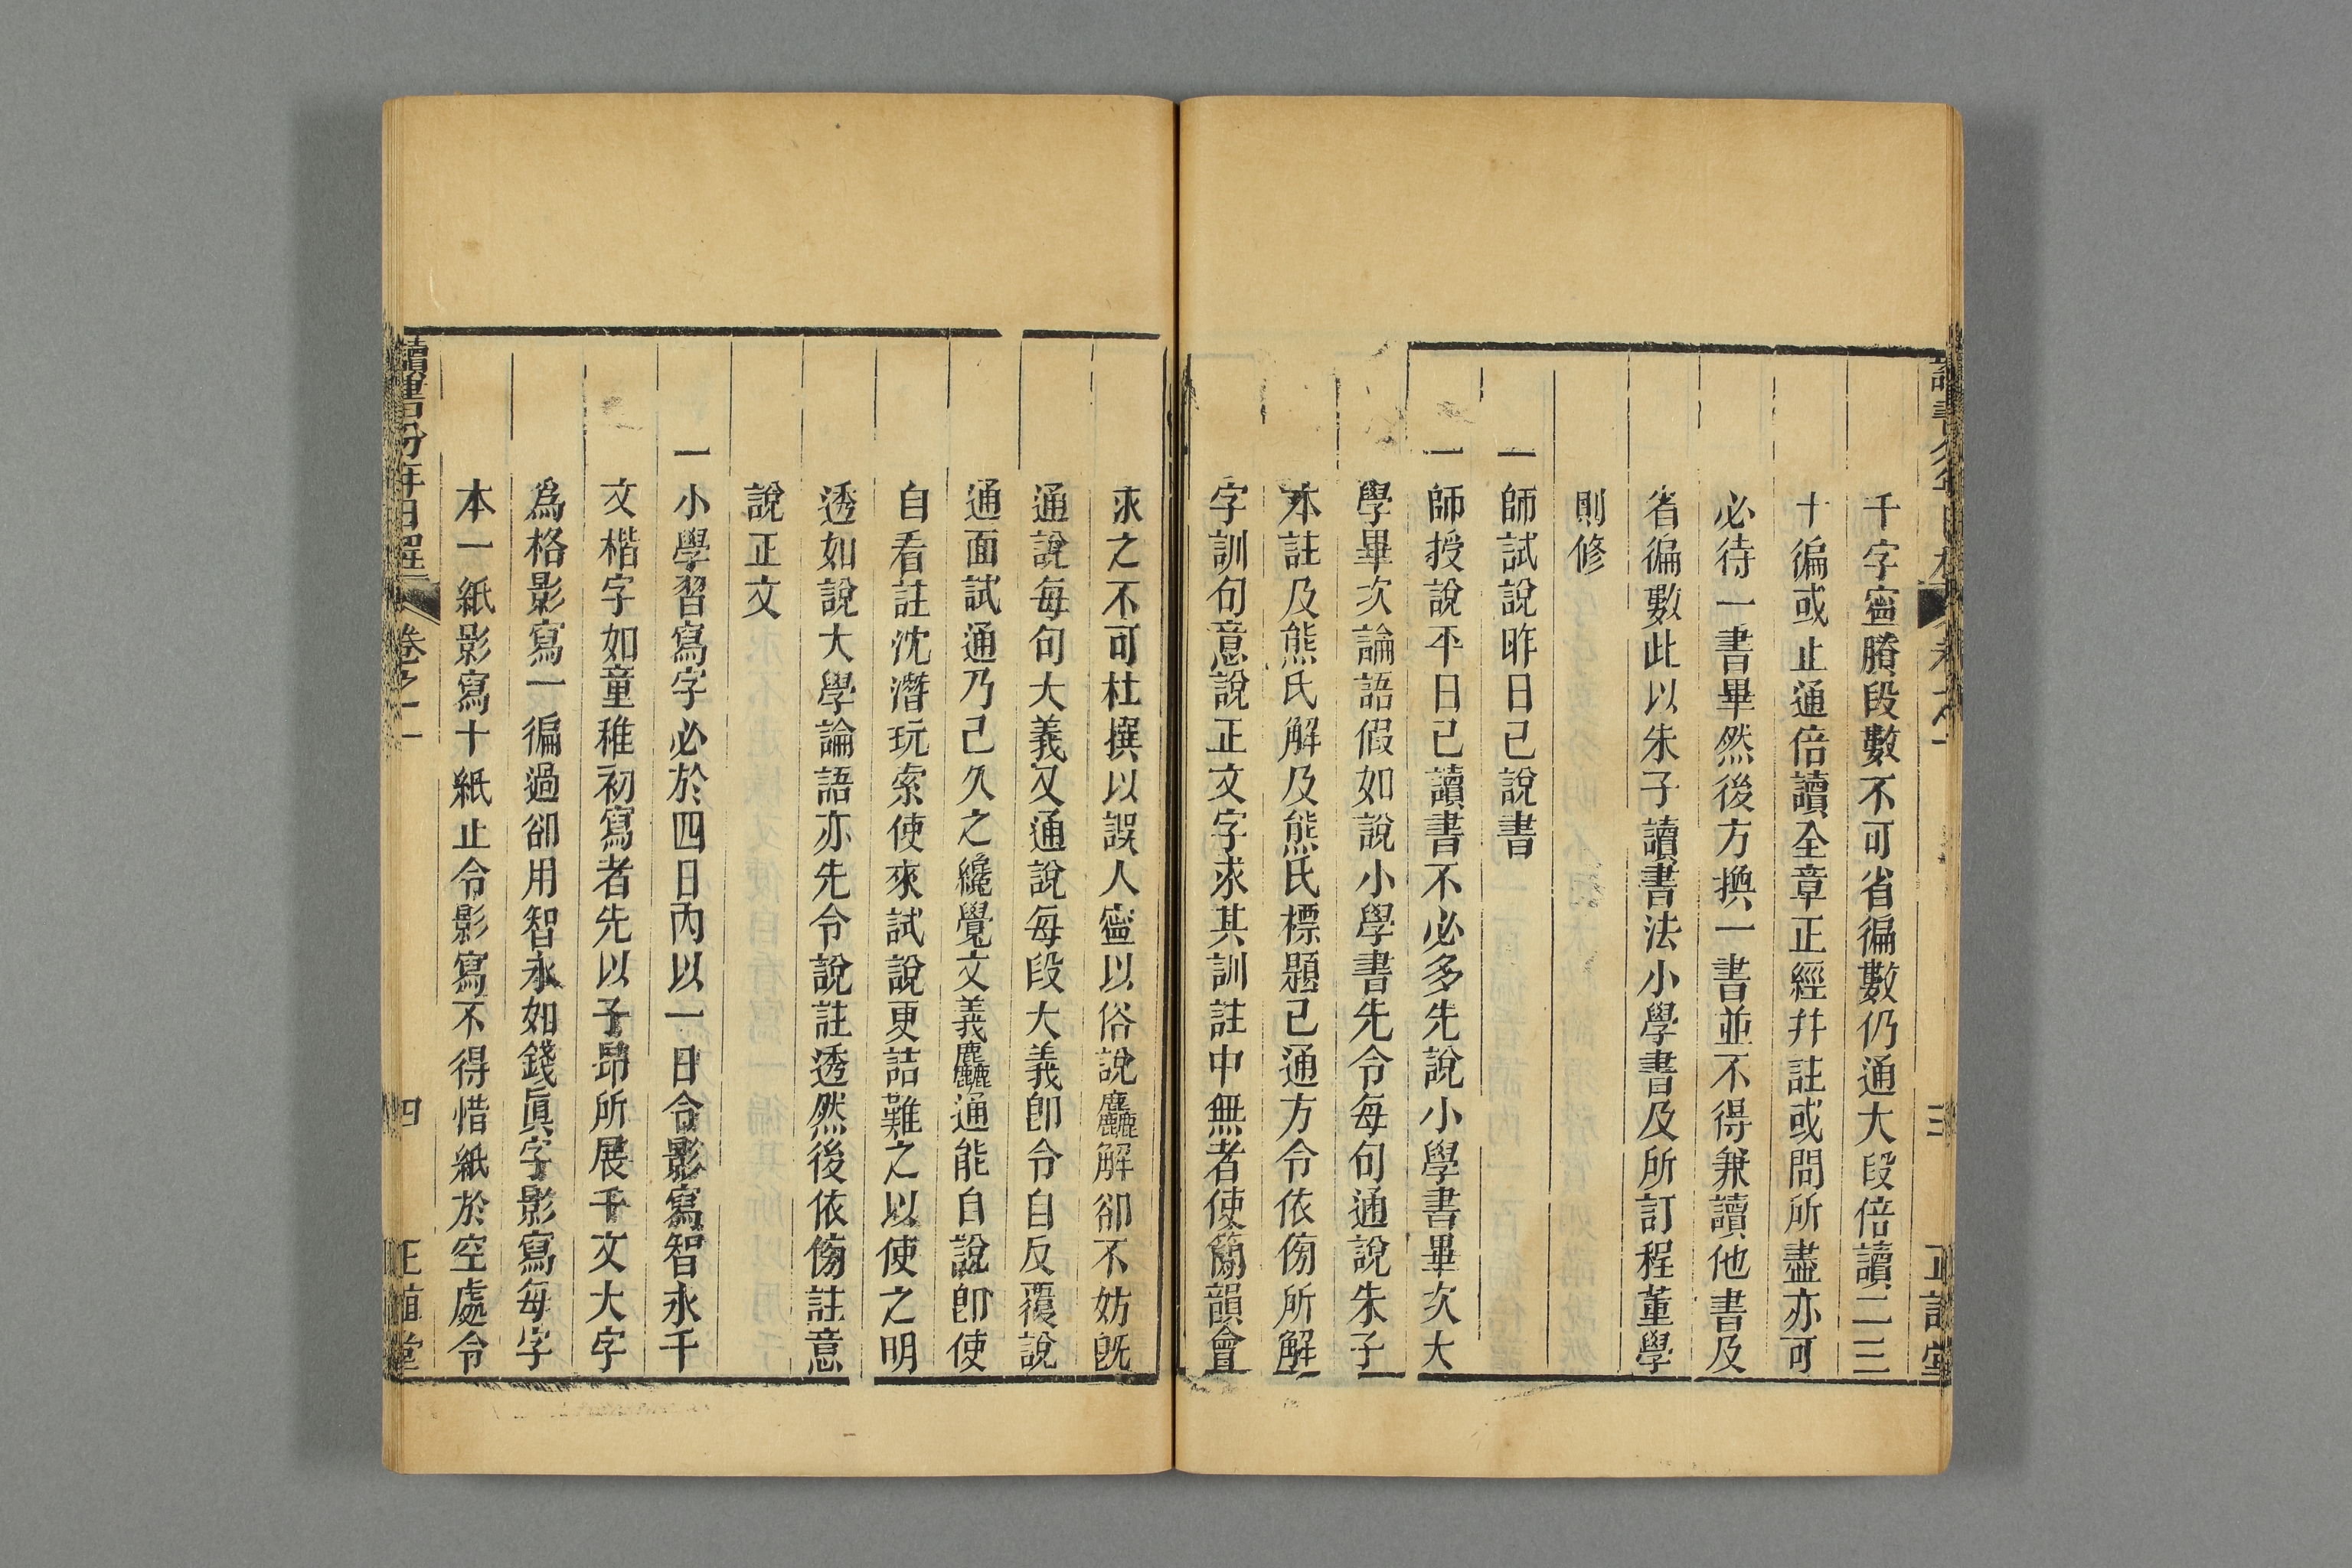 千字寧賸段數不可省徧數仍通大段倍讀二三
十徧或止通倍讀全章正經幷註或問所盡亦可
必待一書畢然後方換一書並不得兼讀他書及
省徧數此以朱子讀書法小學書及所訂程董學
則修
一師試說昨日已說書
一師授說平日已讀書不必多先說小學書畢次大
學畢次論語假如說小學書先令每句通說朱子
本註及熊氏解及熊氏標題已通方令依傍所解
字訓句意說正文字求其訓註中無者使簡韻會
求之不可杜撰以誤人寧以俗說麤解卻不妨旣
通說每句大義又通說每段大義卽令自反覆說
通面試通乃已久之纔覺文義麤通能自說卽使
自看註沈潛玩索使來試說更詰難之以使之明
透如說大學論語亦先令說註透然後依傍註意
說正文
一小學習寫字必於四日內以一日令影寫智永千
文楷字如童稚初寫者先以子昻所展千文大字
爲格影寫一徧過卻用智永如錢眞字影寫每字
本一紙影寫十紙止令影寫不得惜紙於空處令
讀書分年日程 卷之一 四 正誼堂